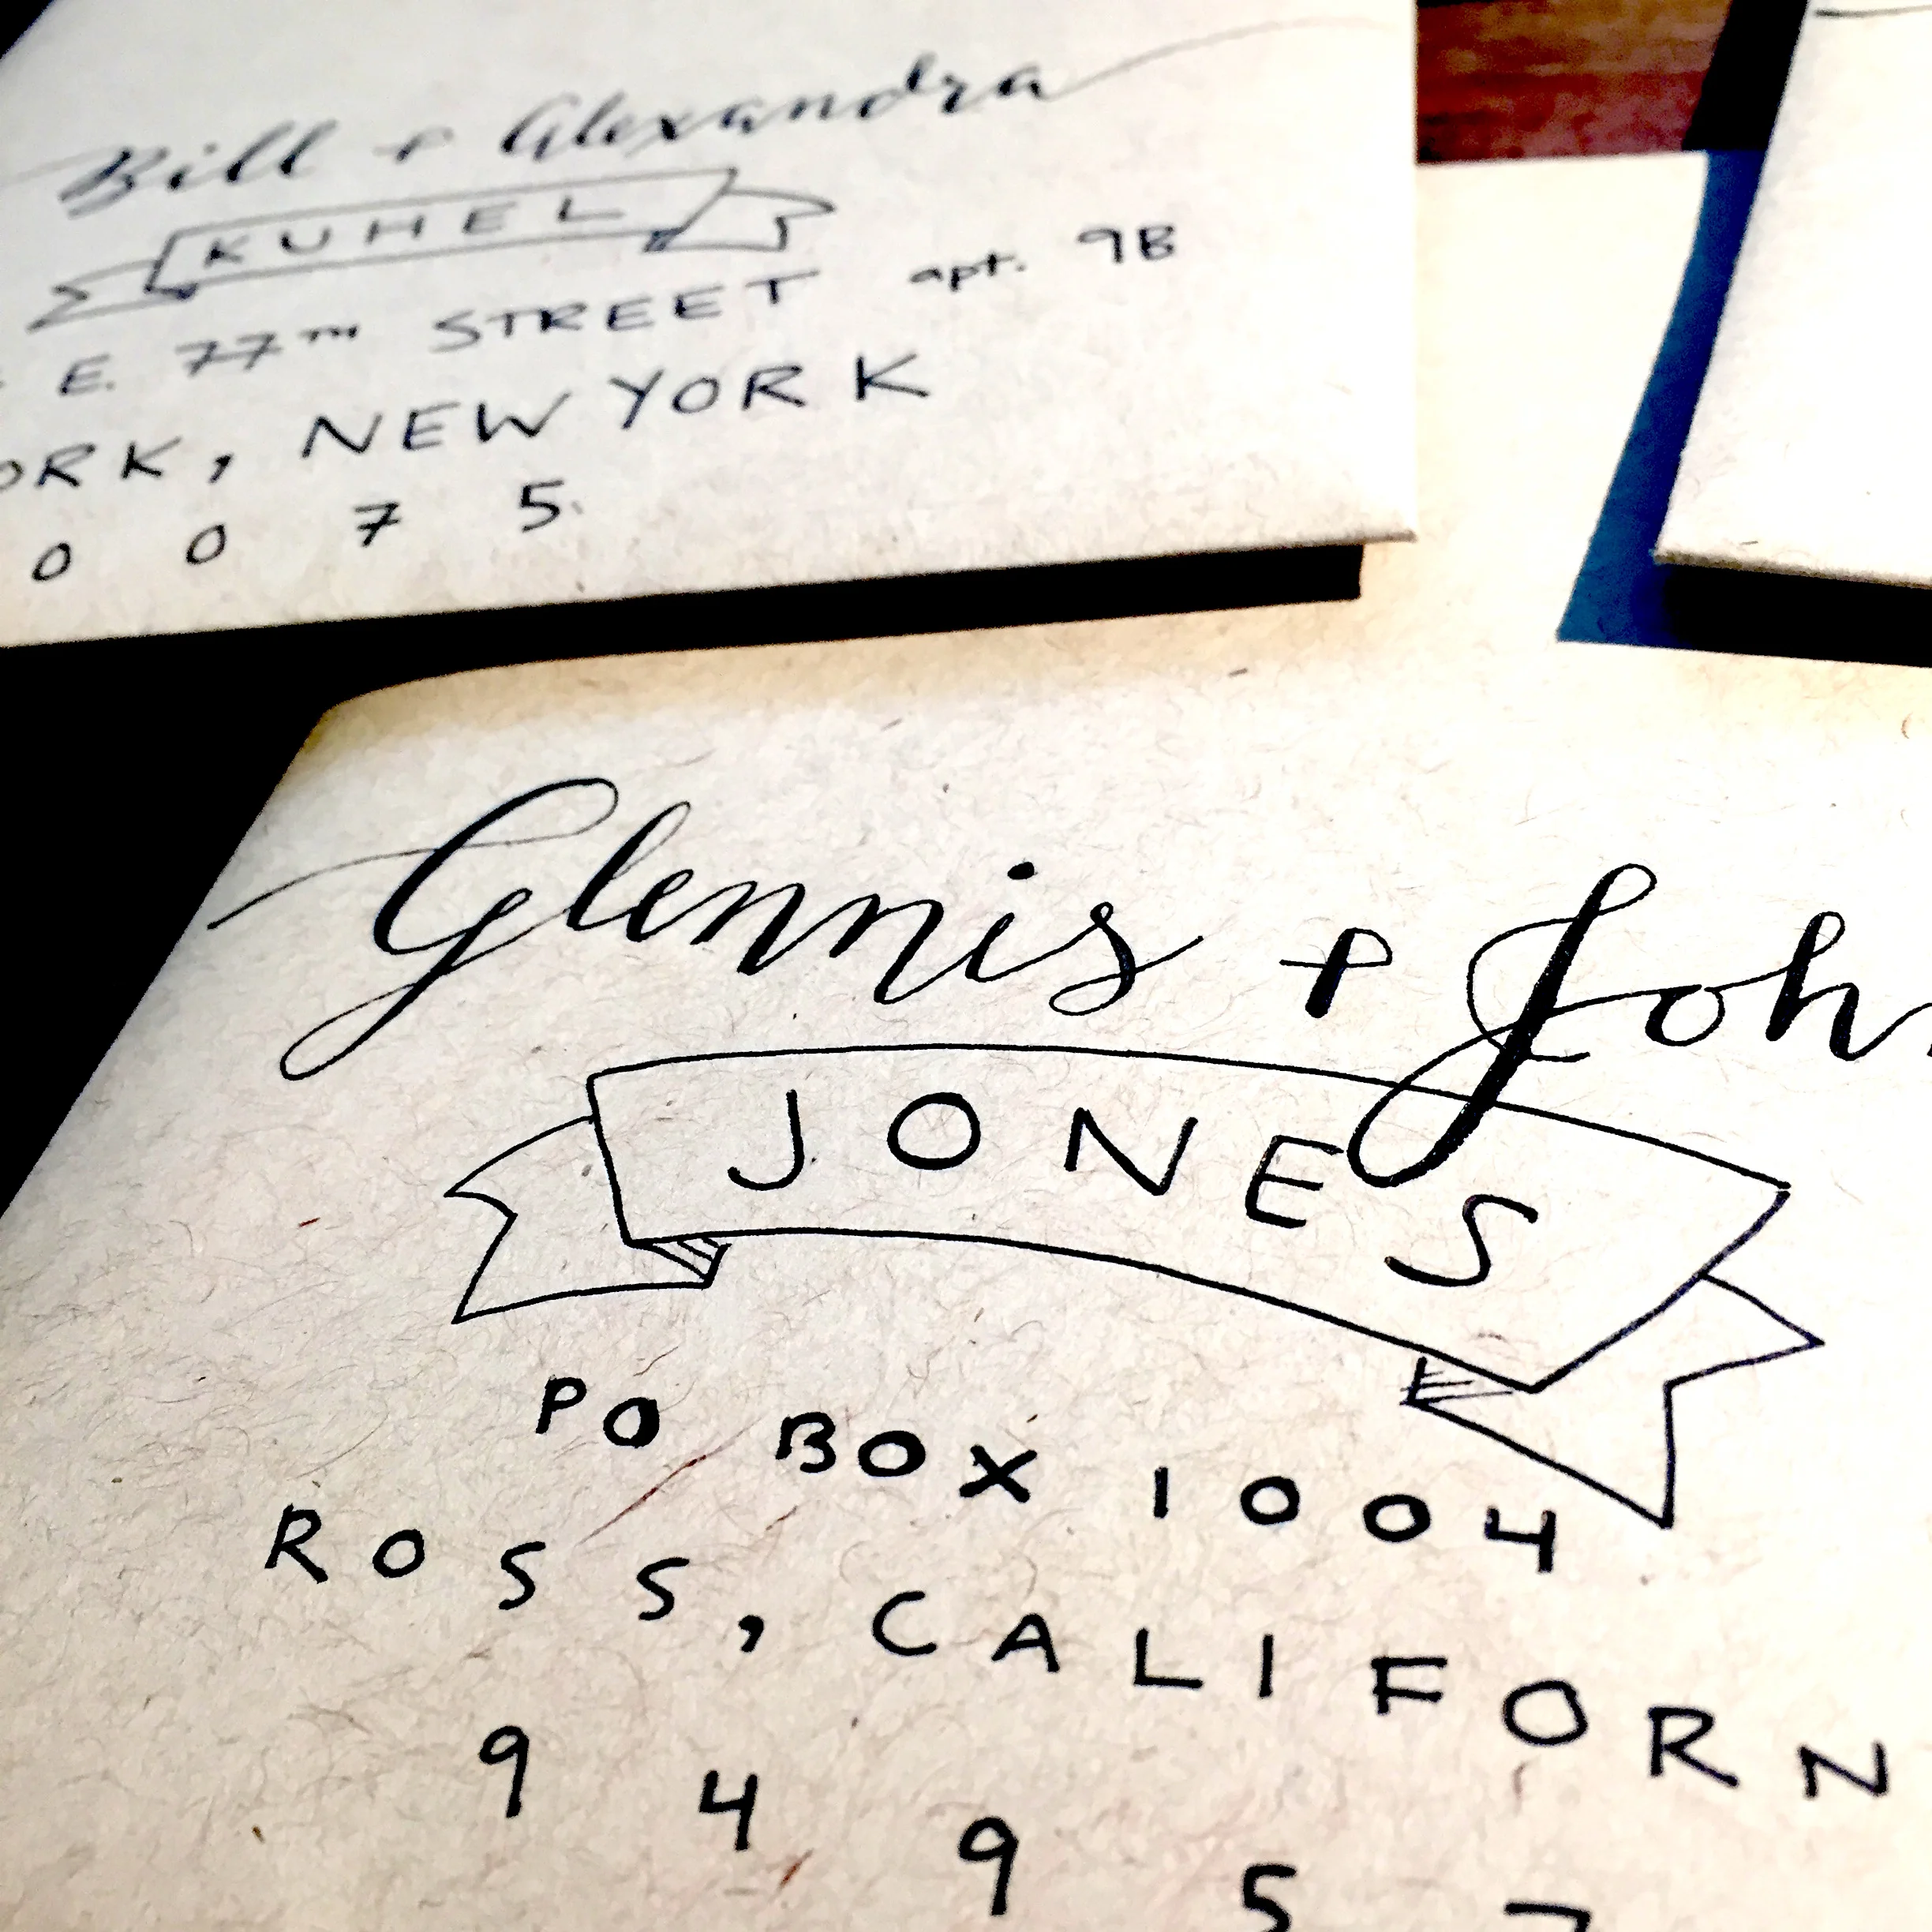 Bill + Alexandra
KUHEL
E. 77TH STREET apt. 9B
ORK, NEW YORK
0 0 7 5
Glennis + John
JONES
PO BOX 1004
ROSS, CALIFORN
9 4 9 5 7